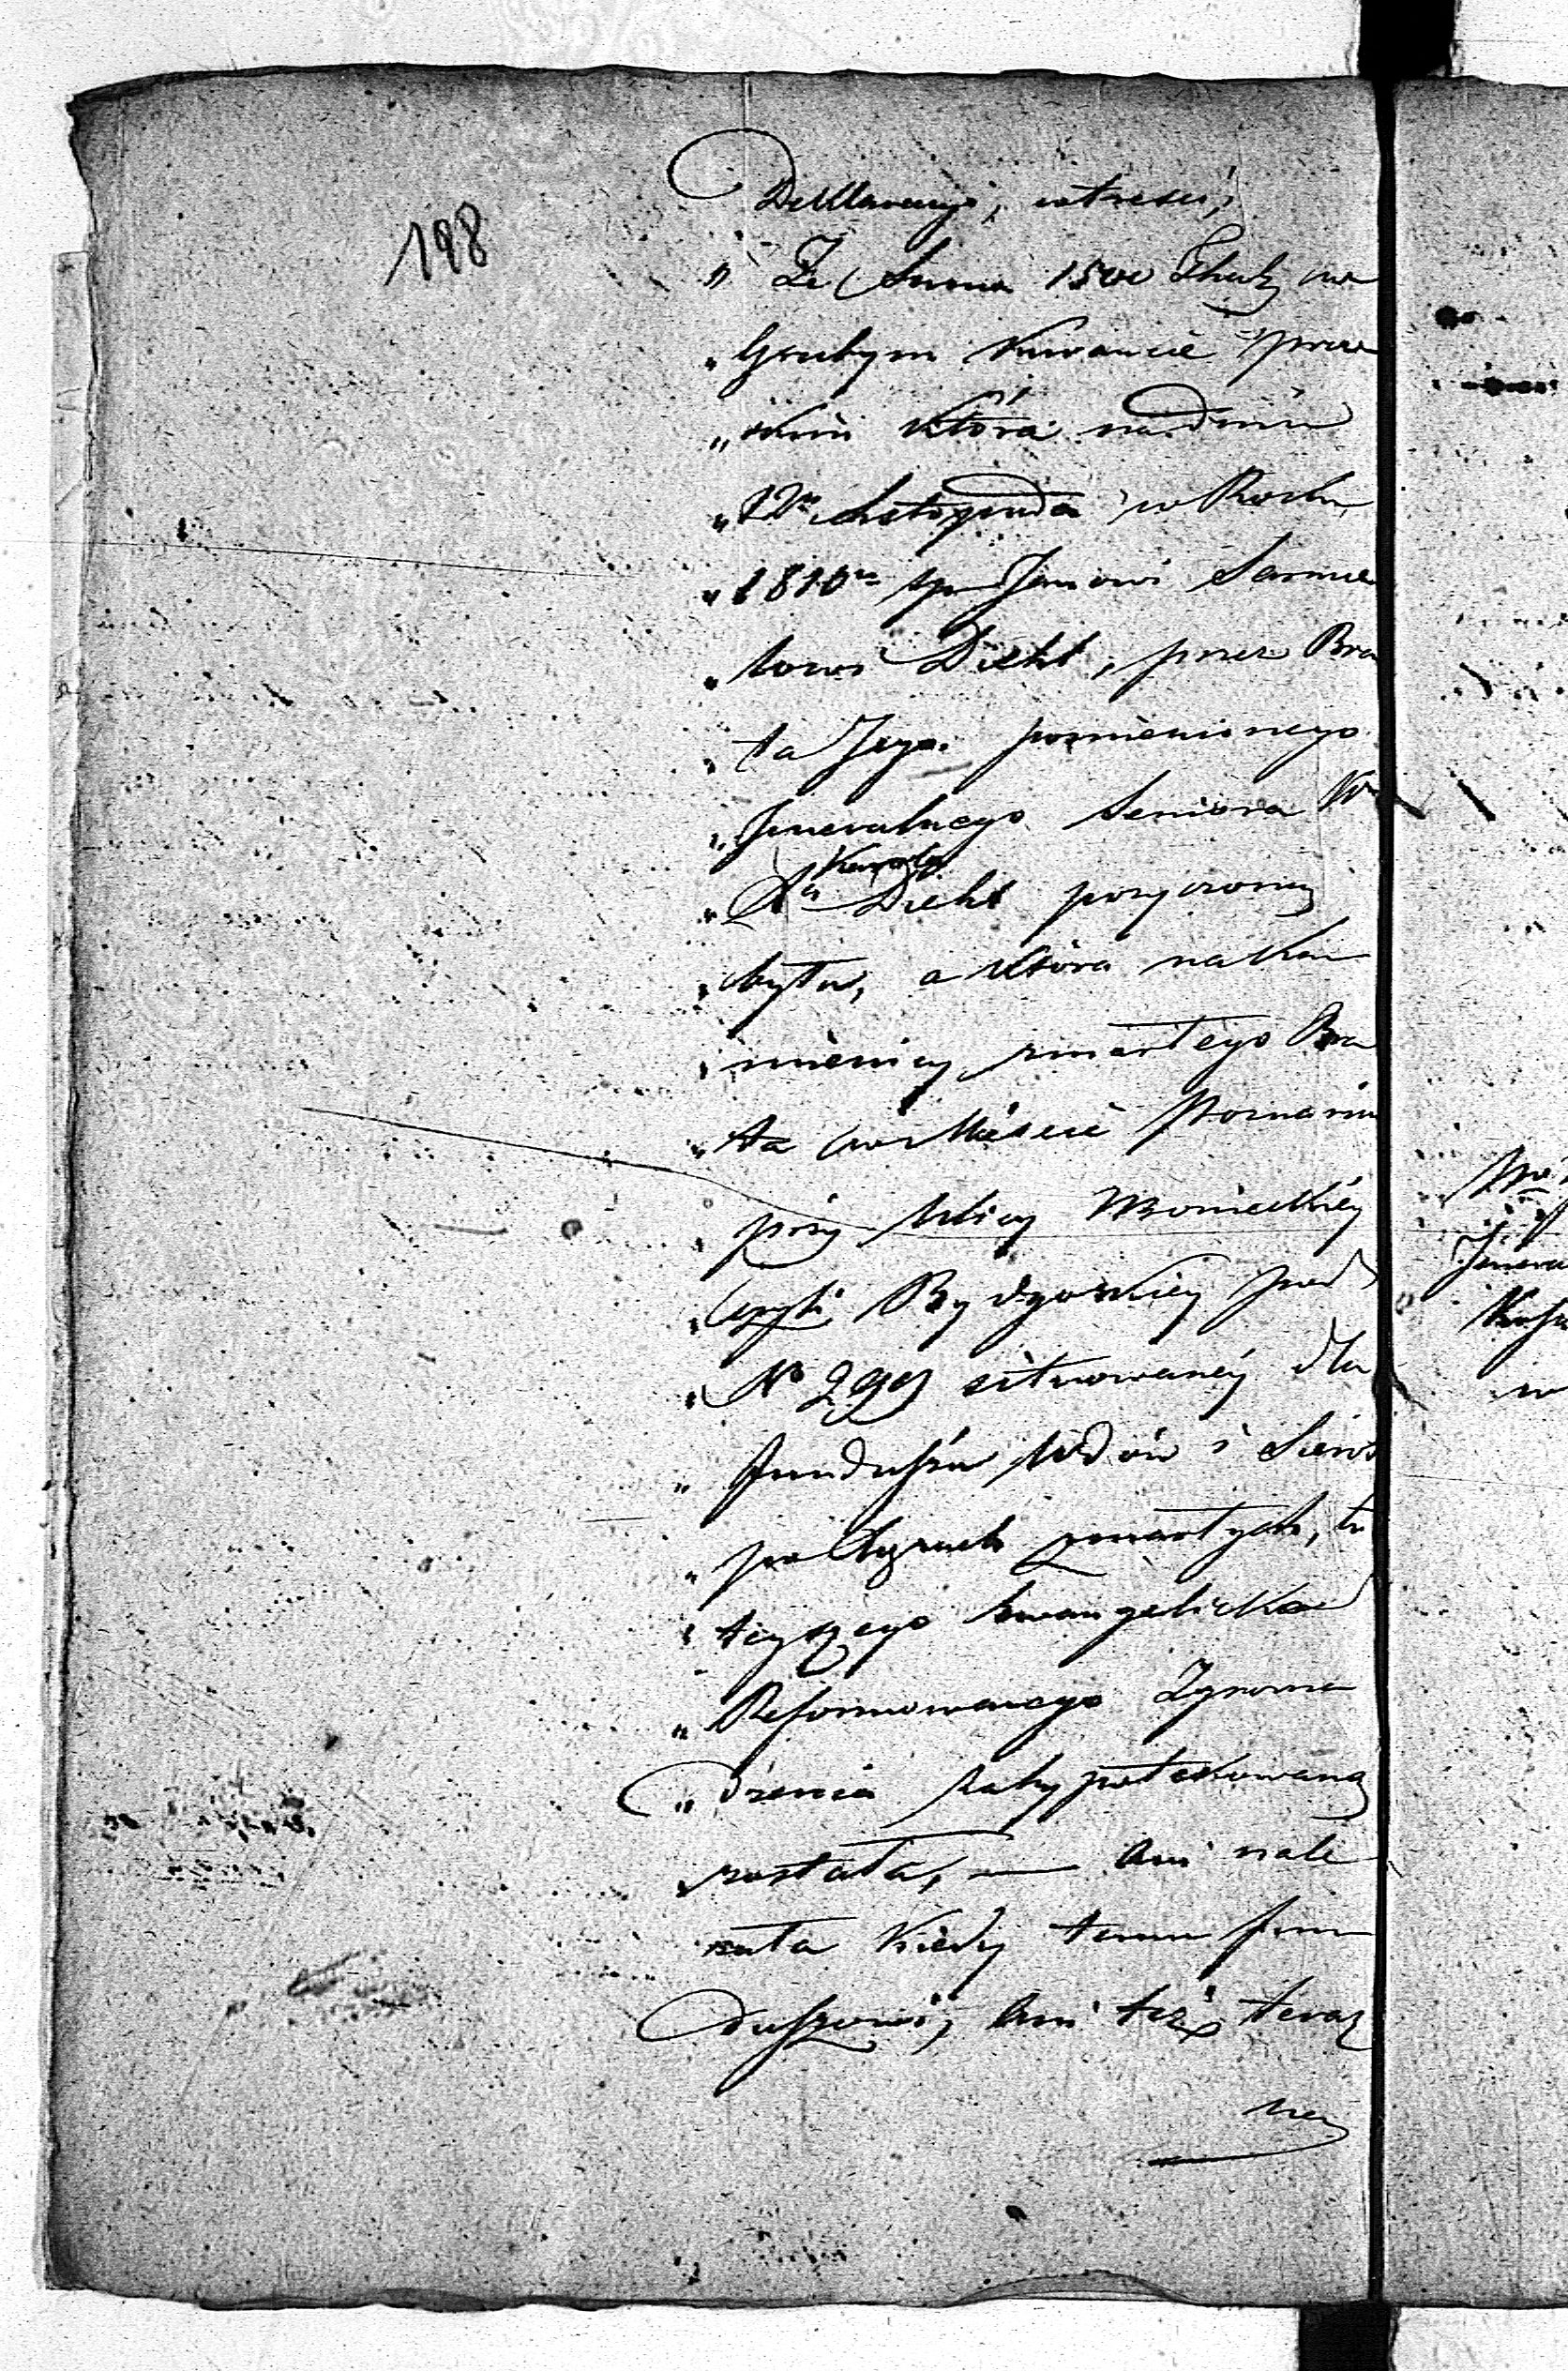 198
Deklaracyi, w treści,
„ Że Summa 1500 Thal. w
„ Grubym Kurancie Prus
„ kim która na dniu
„ 12ᵒ Listopada w Roku
„ 1810ᵐ śp Janowi Samue
„ lowi Diehl, przez Bra
„ ta Jego pomienionego
„ Jeneralnego Seniora
„ Karola Diehl pożyczoną
„ była, a która na Ka
„ mienicy zmarłego Bra
„ ta w Mieście Poznaniu
„ przy Ulicy Wronieckiéy
„ czyli Bydgoskiey pod
„ No 299 sytuowanéy dla
„ Funduszu Wdów i Sierot
„ po Xiężach zmarłych, tu
„ teyszego Ewangelicko
„ Reformowanego Zgroma
„ dzenia zahypotekowaną
została, — ani nale
zała kiedy temu fun
duszowi, ani też teraz